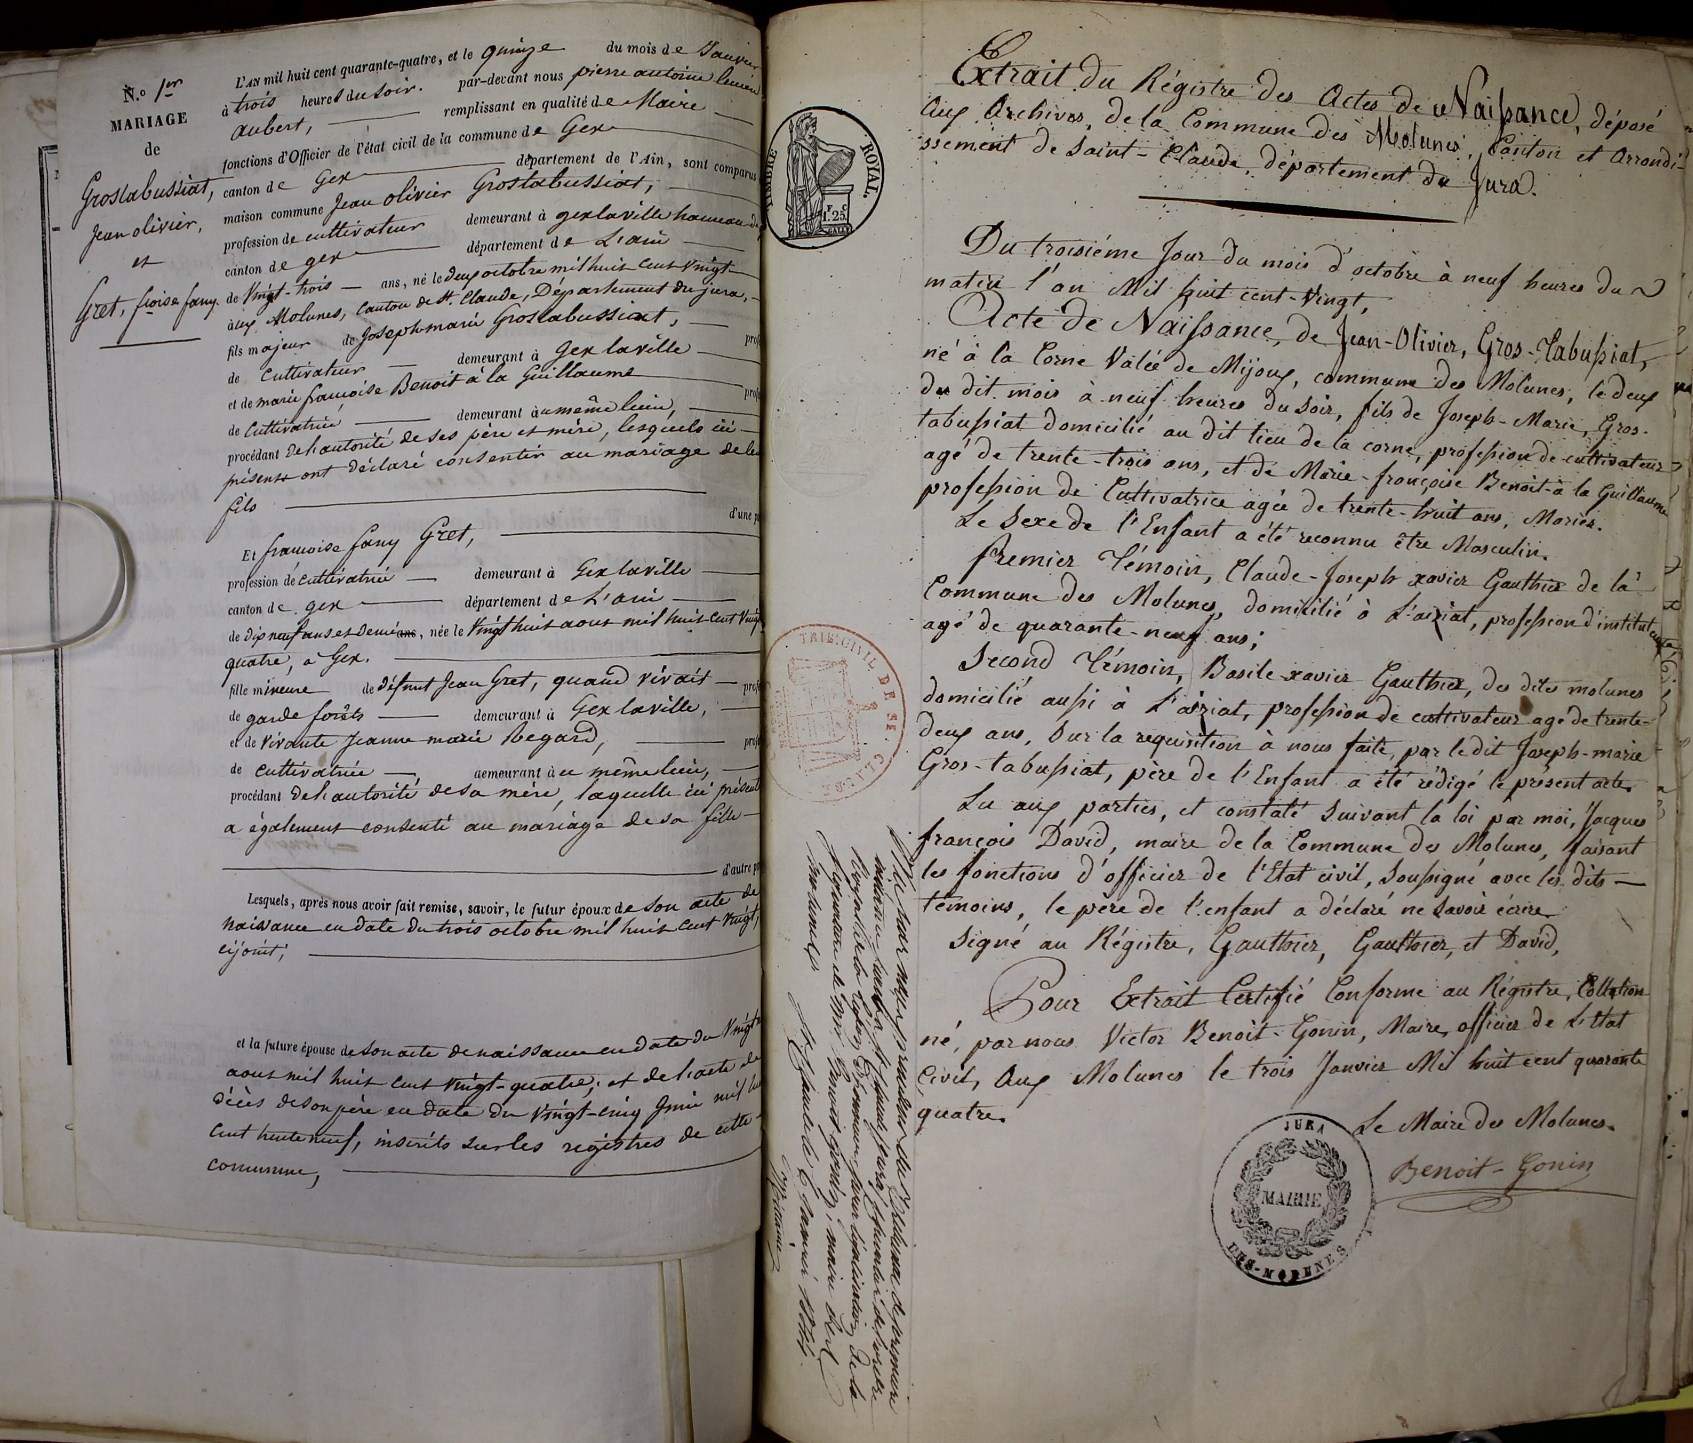 N.o 1er
MARIAGE
de
Grostabussiat,
Jean olivier,
et
Gret, fcoise fany.
L'AN mil huit cent quarante-quatre, et le quinze du mois de Janvier
à trois heures du soir. par-devant nous pierre antoine lucien
aubert, remplissant en qualité de Maire
fonctions d'Officier de l'état civil de la commune de Gex
canton de Gex département de l'Ain, sont comparus
maison commune Jean olivier Grostabussiat,
profession de cultivateur demeurant à gex la ville hameau de
canton de gex département de L'ain
de Vingt-trois ans, né le deux octobre mil huit cent Vingt
aux Molunes, Canton de St. Claude, Département du jura,
fils majeur de Joseph-marie Grostabussiat,
de Cultivateur demeurant à Gex la ville
et de marie francoise Benoit à la Guillaume
de Cultivatrice demeurant au même lieu,
procédant de l'autorité de ses père et mère, lesquels ici
présents ont déclaré consentir au mariage de leur
fils
d'une p
Et francoise fany Gret,
profession de cultivatrice demeurant à Gex la ville
canton de gex département de L'ain
de dix neuf ans et demi ans, née le Vingt huit aout mil huit-cent Vingt
quatre, à Gex.
fille mineure de défunt Jean Gret, quand vivait
de garde forêts demeurant à Gex la ville,
et de vivante Jeanne marie Regard,
de cultivatrice demeurant à ce même lieu,
procédant de l'autorité de sa mère, laquelle ici présente
a également consenti au mariage de sa fille
d'autre p
Lesquels, après nous avoir fait remise, savoir, le futur époux de son acte de
naissance en date du trois octobre mil huit cent vingt,
cijoint;
et la future épouse de son acte de naissance en date du Vingt
aout mil huit cent vingt-quatre; et de l'acte de
décès de son père en date du vingt-cinq Juin mil huit
cent trente neuf, inscrits sur les registres de cette
commune,
TIMBRE ROYAL.
F. C
1.25.
TRIB. CIVIL DE ST. CLAUDE
Extrait du Régistre des Actes de Naissance, déposé
Aux Archives, de la Commune des Molunes, Canton et Arrondi-
ssement de Saint-Claude, département du Jura.
Du troisième Jour du mois d'octobre à neuf heures du
matin l'an Mil huit cent-vingt,
Acte de Naissance, de Jean-Olivier, Gros-Tabussiat,
né à la Corne Valée de Mijoux, commune des Molunes, le deux
du dit mois à neuf heures du soir, fils de Joseph-Marie, Gros-
tabussiat domicilié au dit lieu de la corne, profession de cultivateur
agé de trente-trois ans, et de Marie-françoise Benoit-à la Guillaume
profession de Cultivatrice agée de trente-huit ans, Mariés.
Le Sexe de l'Enfant a été reconnu être Masculin.
Premier Témoin, Claude-Joseph xavier Gauthier de la
Commune des Molunes, domicilié à L'aiziat, profession d'instituteur
agé de quarante-neuf ans;
Second Témoin, Basile xavier Gauthier, des dites molunes
domicilié aussi à L'aiziat, profession de cultivateur agé de trente-
deux ans, Sur la requisition à nous faite, par le dit Joseph-marie
Gros-tabussiat, père de l'Enfant a été rédigé le présent acte.
Lu aux parties, et constaté suivant la loi par moi, Jacques
françois David, maire de la Commune des Molunes, faisant
les fonctions d'officier de l'Etat civil, Soussigné avec les dits
témoins, le père de l'enfant a déclaré ne savoir écrire
Signé au Régistre, Gauthier, Gauthier, et David,
Pour Extrait Certifié Conforme au Régistre, Collation-
né, par nous Victor Benoit-Gonin, Maire, officier de L'Etat
Civil, Aux Molunes le trois Janvier Mil huit cent quarante
quatre.
Le Maire des Molunes.
Benoit-Gonin
JURA
MAIRIE
DES-MOLUNES
Vu par nous président du Tribunal de première
signature de Mr. Benoit gonin, maire des
molunes St Claude le 6 janvier 1844.